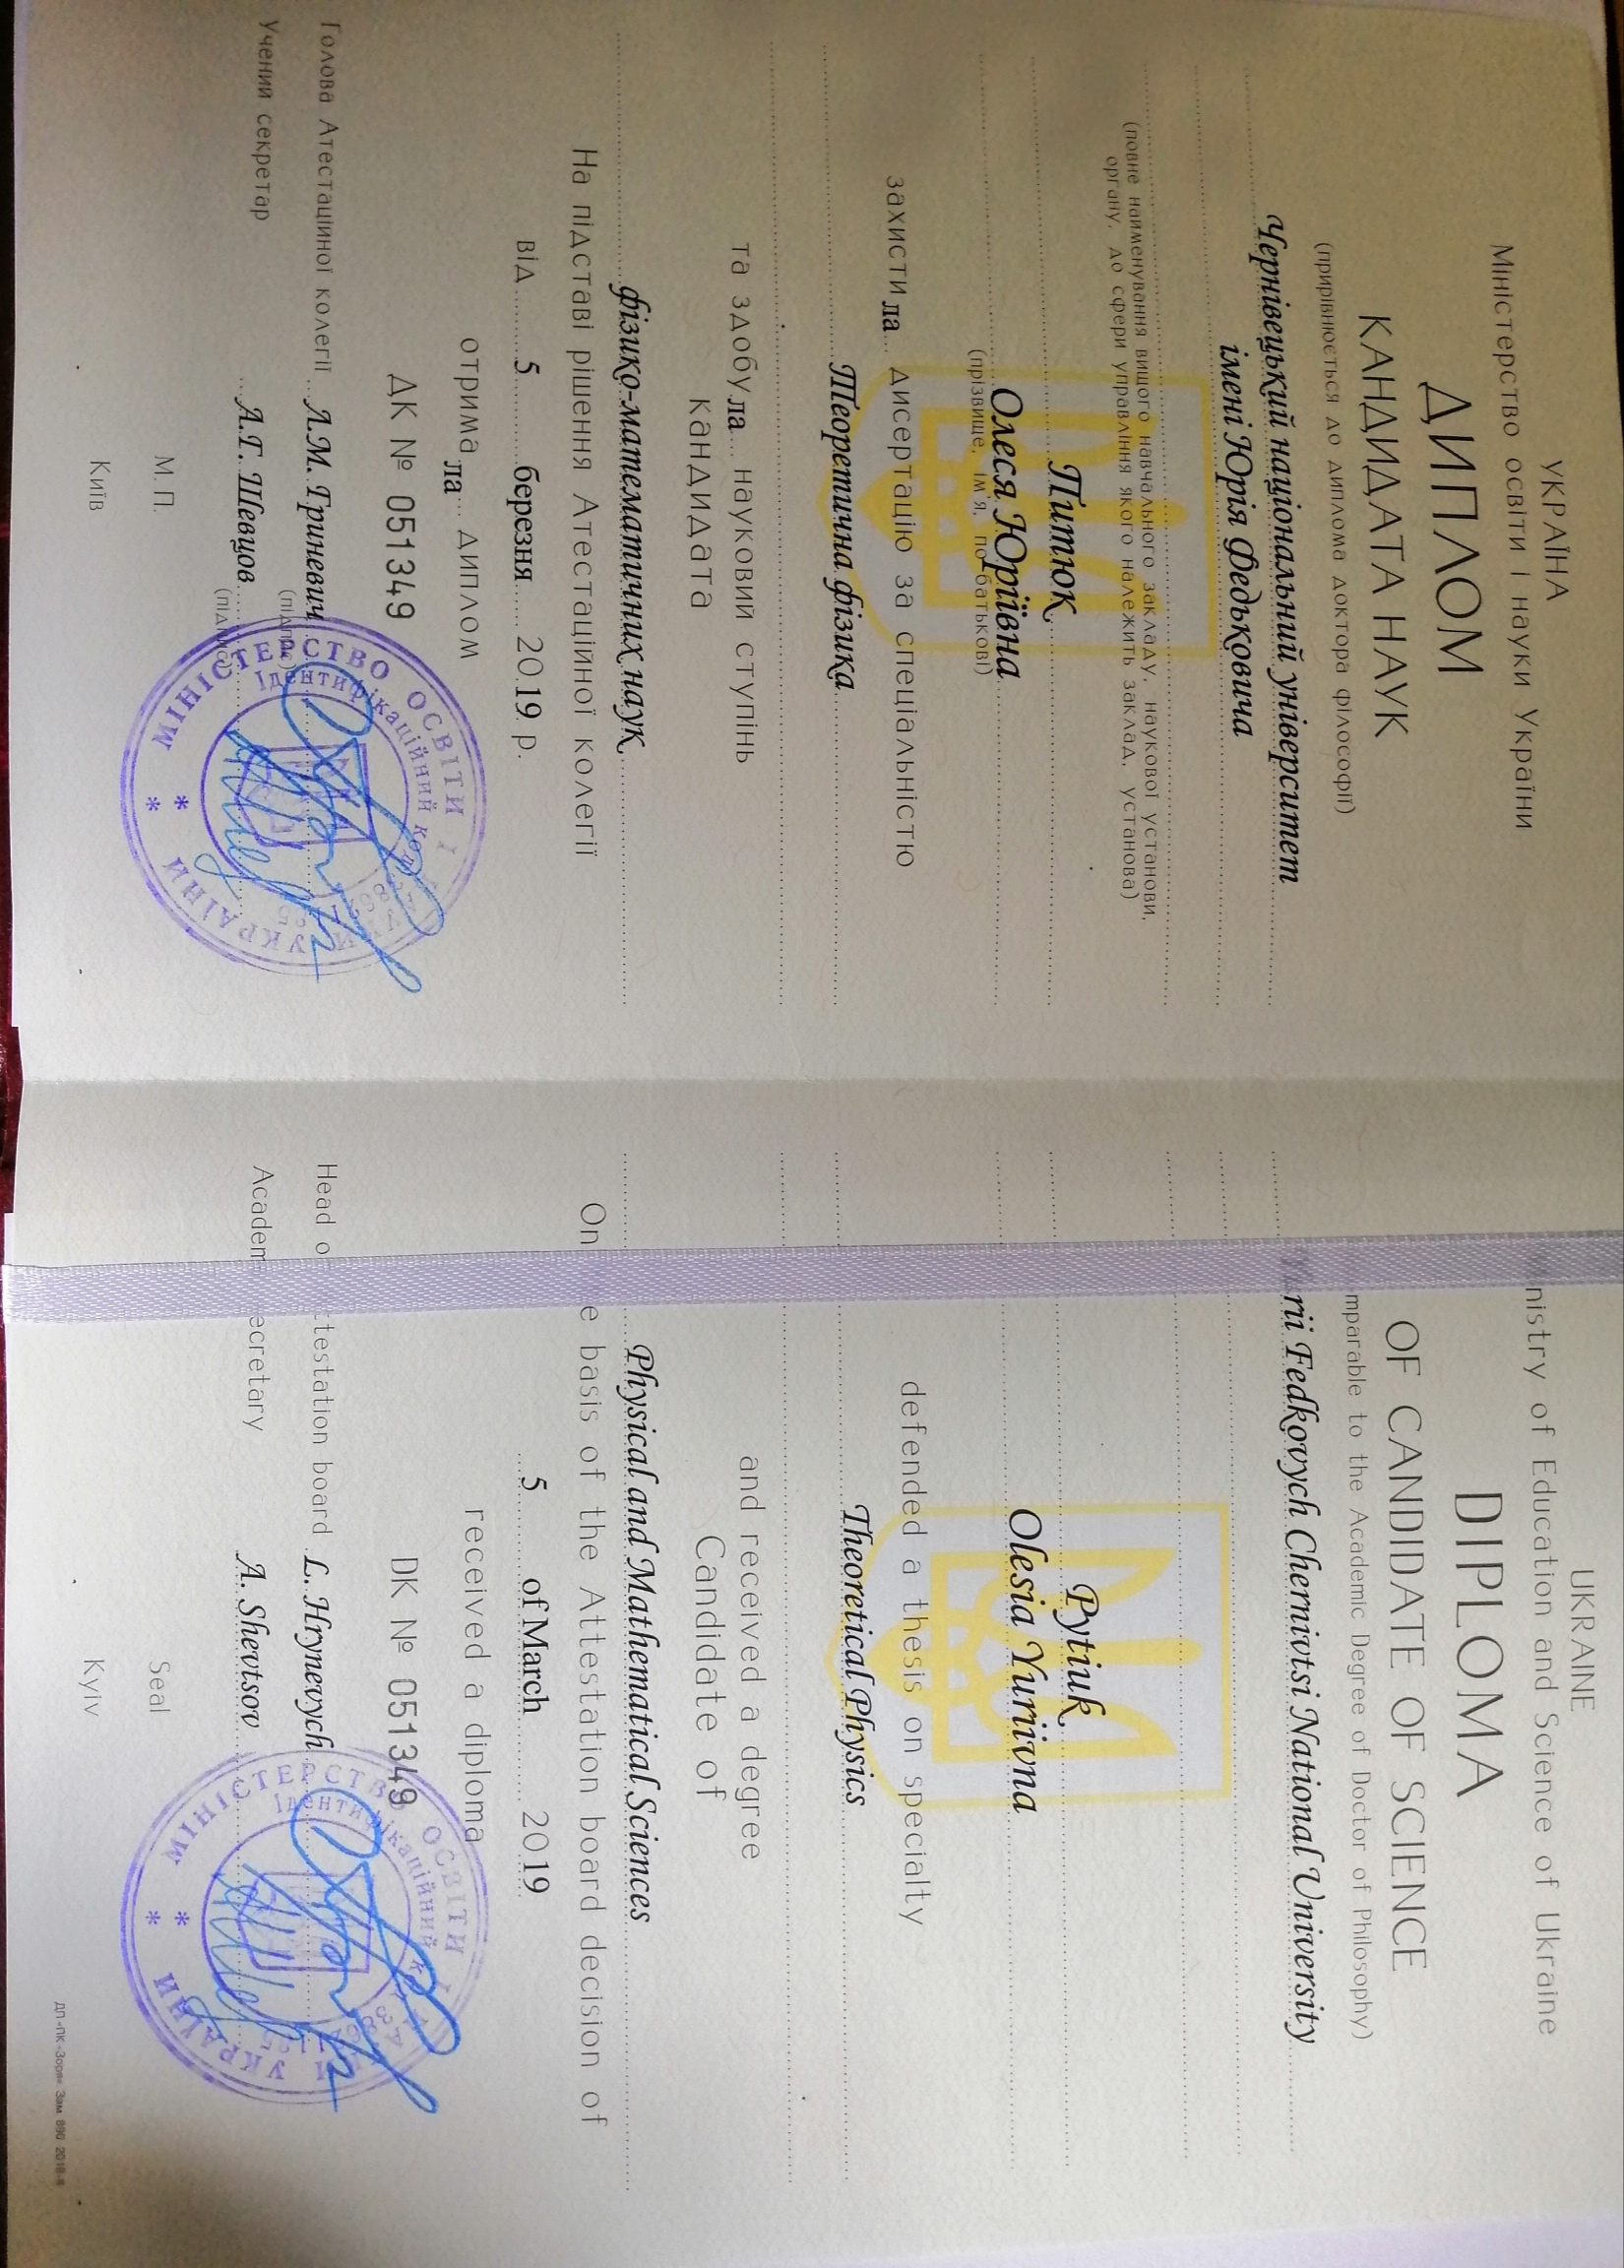 УКРАЇНА
Міністерство освіти і науки України
ДИПЛОМ
КАНДИДАТА НАУК
(прирівнюється до диплома доктора філософії)
Чернівецький національний університет
імені Юрія Федьковича
(повне найменування вищого навчального закладу, наукової установи,
органу, до сфери управління якого належить заклад, установа)
Питюк
Олеся Юріївна
(прізвище, ім'я, по батькові)
захистила дисертацію за спеціальністю
Теоретична фізика
та здобула науковий ступінь
кандидата
фізико-математичних наук
На підставі рішення Атестаційної колегії
від 5 березня 2019 р.
отримала диплом
ДК № 051349
Голова Атестаційної колегії Л.М. Гриневич
(підпис)
Учений секретар А.Г. Шевцов
(підпис)
М.П.
Київ
МІНІСТЕРСТВО ОСВІТИ І НАУКИ УКРАЇНИ * *
Ідентифікаційний код
UKRAINE
nistry of Education and Science of Ukraine
DIPLOMA
OF CANDIDATE OF SCIENCE
mparable to the Academic Degree of Doctor of Philosophy)
rii Fedkovych Chernivtsi National University
Pytiuk
Olesia Yuriivna
defended a thesis on specialty
Theoretical Physics
and received a degree
Candidate of
Physical and Mathematical Sciences
On e basis of the Attestation board decision of
5 of March 2019
received a diploma
DK № 051349
Head o testation board L. Hrynevych
Academ ecretary A. Shevtsov
Seal
Kyiv
МІНІСТЕРСТВО ОСВІТИ І НАУКИ УКРАЇНИ * *
Ідентифікаційний
ДП «ПК «Зоря» Зам. 890 2018-8